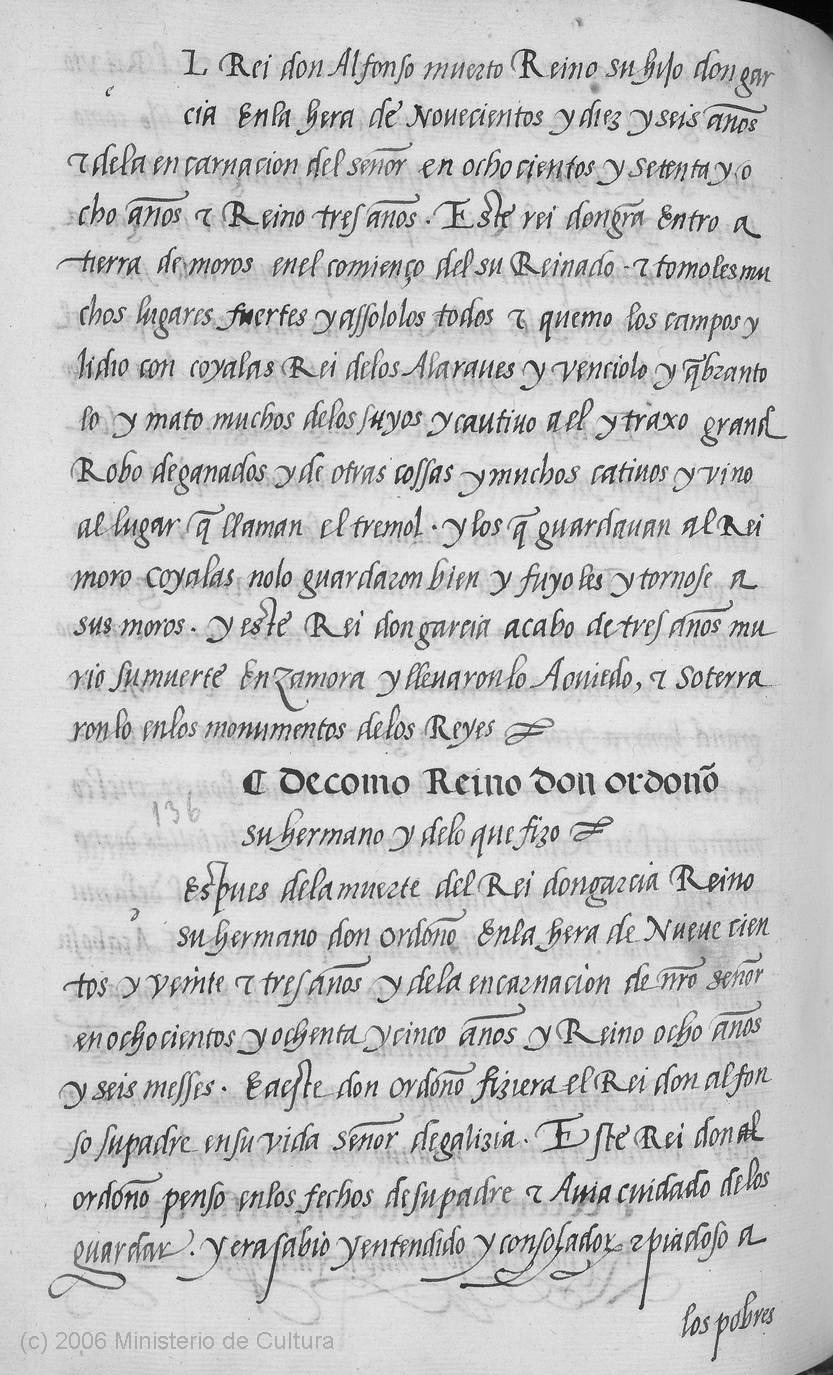 L Rei don Alfonso muerto Reino su hijo don gar
e
cia Enla hera de Novecientos y diez y seis años
⁊ dela encarnacion del señor en ochocientos y setenta y o
cho años ⁊ Reino tres años. Este rei don gr̃a Entro a
tierra de moros enel comienço del su Reinado ⁊ tomoles mu
chos lugares fuertes y assololos todos ⁊ quemo los campos y
lidio con coyalas Rei delos Alaraves y venciolo y q̃branto
lo y mato muchos delos suyos y cautivo a el y traxo grand
Robo de ganados y de otras cossas y muchos cativos y vino
al lugar q̃ llaman el tremol. y los q̃ guardavan al Rei
moro coyalas nolo guardaron bien y fuyoles y tornose a
sus moros. y este Rei don garcia acabo de tres años mu
rio su muerte En Zamora y llevaronlo A oviedo, ⁊ soterra
ronlo enlos monumentos delos Reyes
¶ De como Reino don ordoño
136
su hermano y delo que fizo
Espues dela muerte del Rei don garcia Reino
d
su hermano don ordoño Enla hera de Nueve cien
tos y veinte ⁊ tres años y dela encarnacion de nr̃o señor
en ochocientos y ochenta y cinco años y Reino ocho años
y seis messes. E a este don ordoño fiziera el Rei don alfon
so su padre en su vida señor de galizia. Este Rei don al
ordoño penso enlos fechos de su padre ⁊ Avia cuidado delos
guardar. y era sabio y entendido y consolador ⁊ piadoso a
los pobres
(c) 2006 Ministerio de Cultura